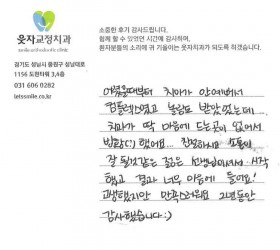 소중한 후기 감사드립니다.
함께 할 수 있었던 시간에 감사하며,
환자분들의 소리에 귀 기울이는 웃자치과가 되도록 하겠습니다.
웃자교정치과
경기도 성남시 중원구 성남대로
1156 도원타워 3,4층
031 606 0282
letssmile.co.kr
어렸을때부터 치아가 안예뻐서
컴플렉스였고 놀림도 받았었는데...
치과가 딱 마음에 드는곳이 없어서
방황(?)했어요... 친절하시고 소통이
잘 될것같은 젊은 선생님이셔서 시작
했고 결과 너무 마음에 들어요!
고생했지만 만족스러워요 2년동안
감사했습니다 :)